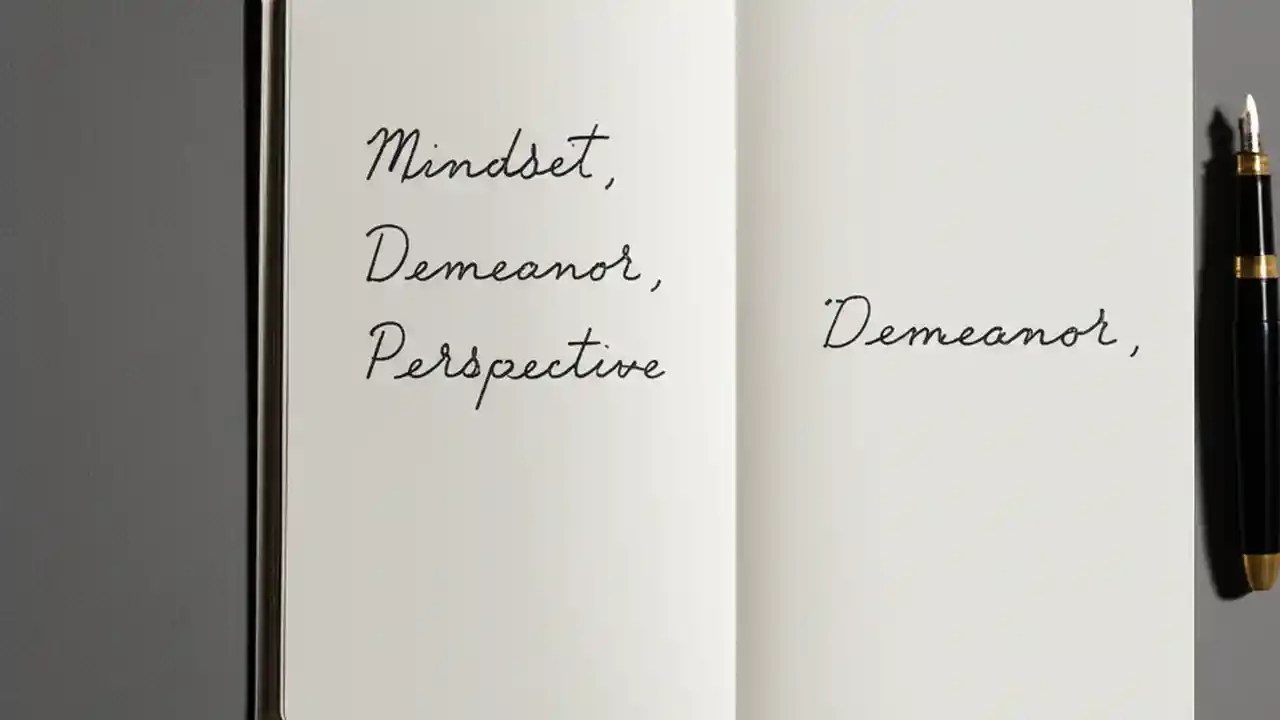 Mindset,
Demeanor,
Perspective
Demeanor,